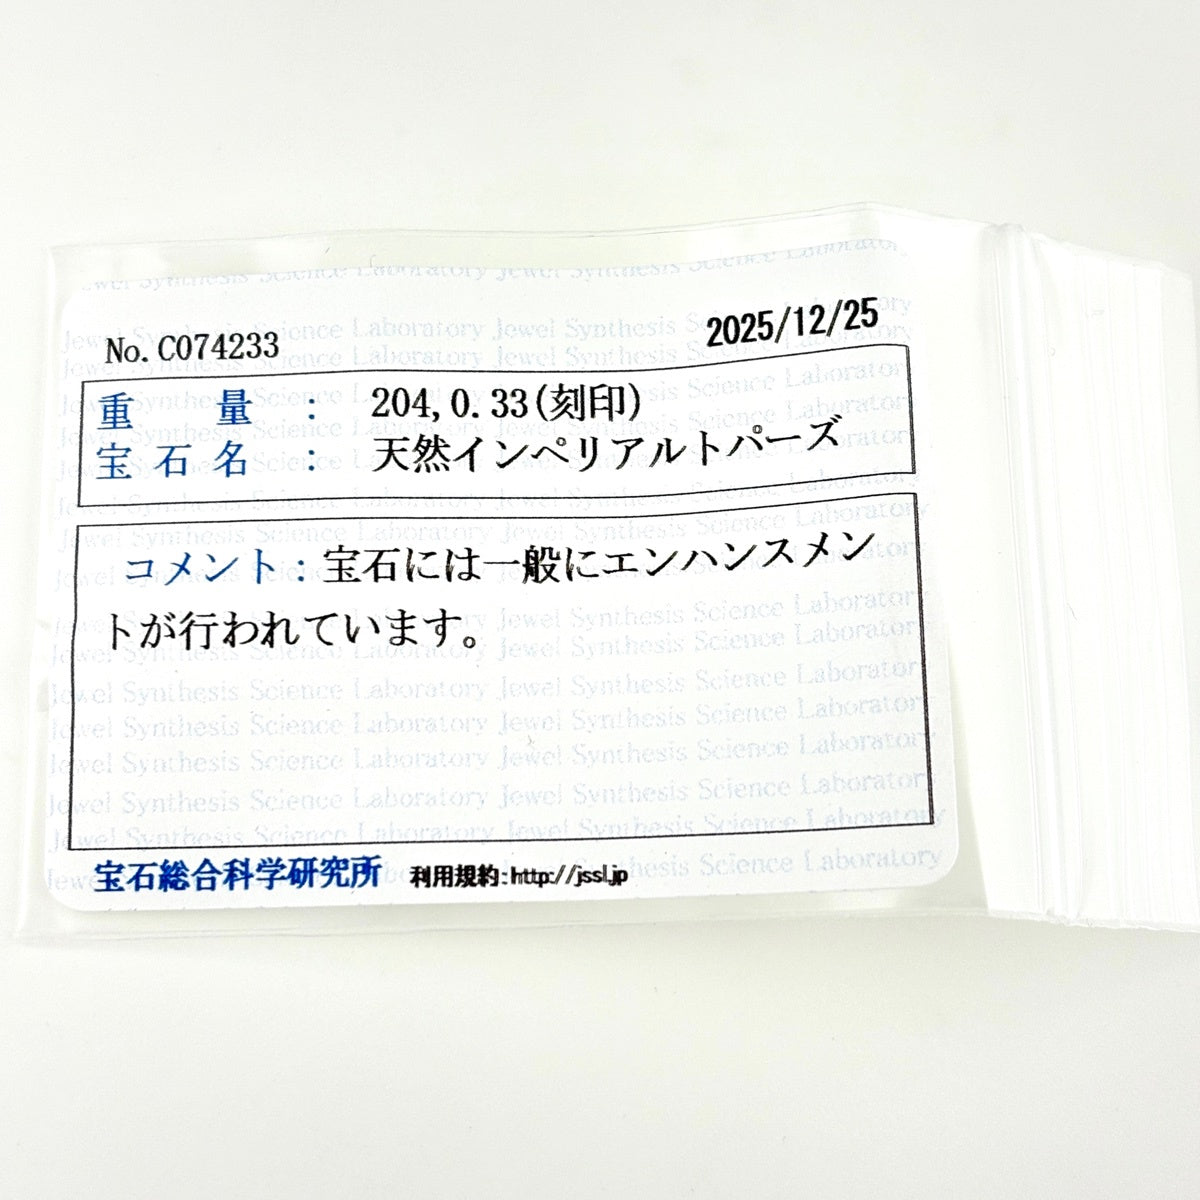 No.C074233
2025/12/25
重量: 204,0.33(刻印)
宝石名: 天然インペリアルトパーズ
コメント:宝石には一般にエンハンスメン
トが行われています。
宝石総合科学研究所 利用規約:http://jssl.jp
Jewel Synthesis Science Laboratory Jewel Synthesis Science Laboratory